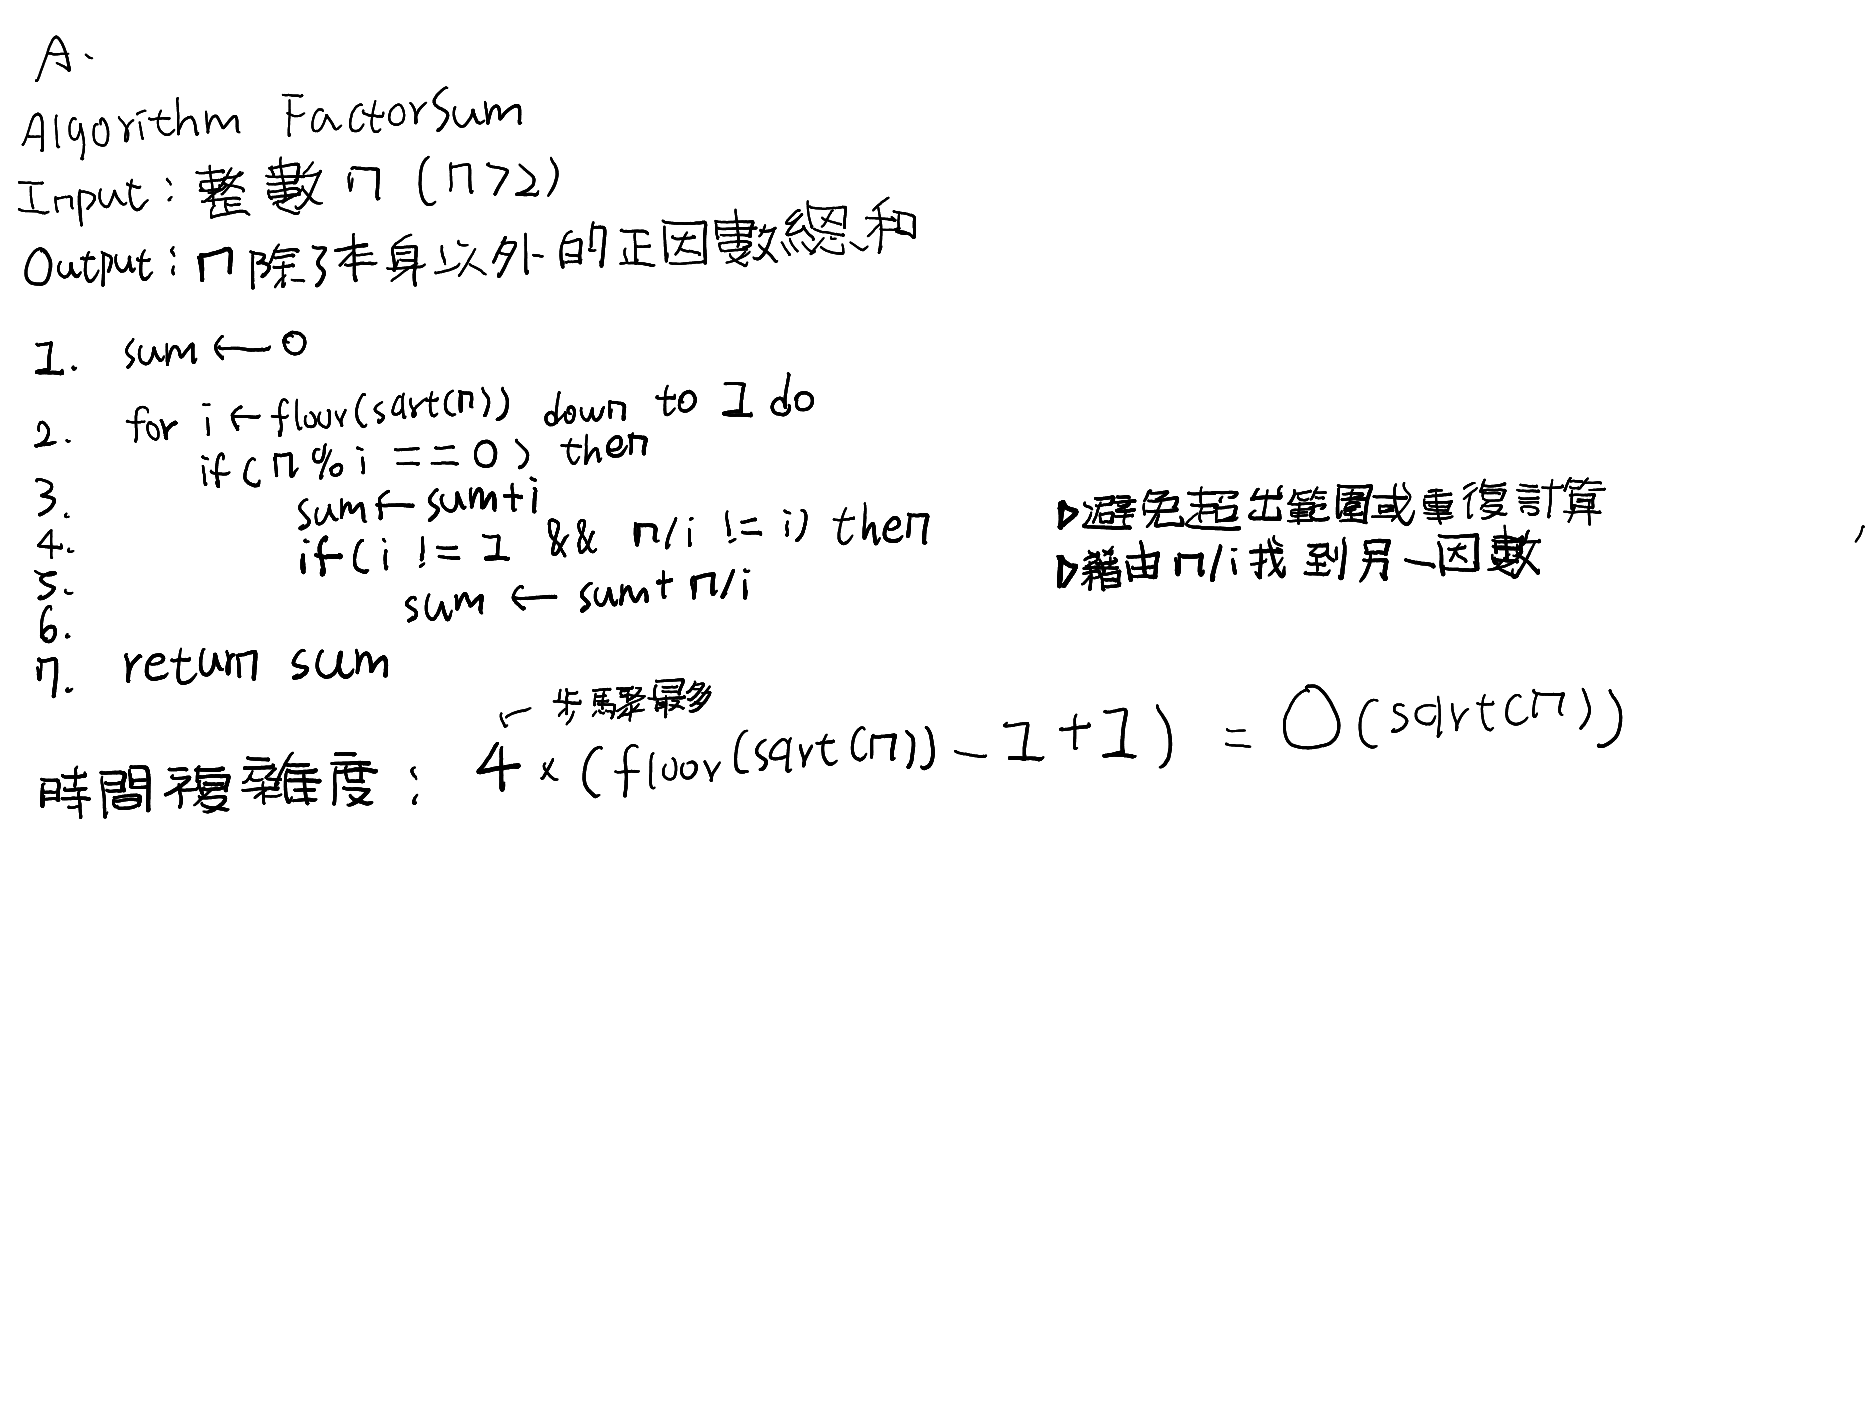 A.
Algorithm FactorSum
Input : 整數 n (n>2)
Output : n除了本身以外的正因數總和
1. sum ← 0
2. for i ← floor(sqrt(n)) down to 1 do
3. if (n % i == 0) then
4. sum ← sum+i
5. if (i != 1 && n/i != i) then ▷避免超出範圍或重復計算
6. sum ← sum+ n/i ▷藉由n/i找到另一因數
7. return sum
← 步驟最多
時間複雜度 : 4 × (floor(sqrt(n)) - 1 + 1) = O(sqrt(n))